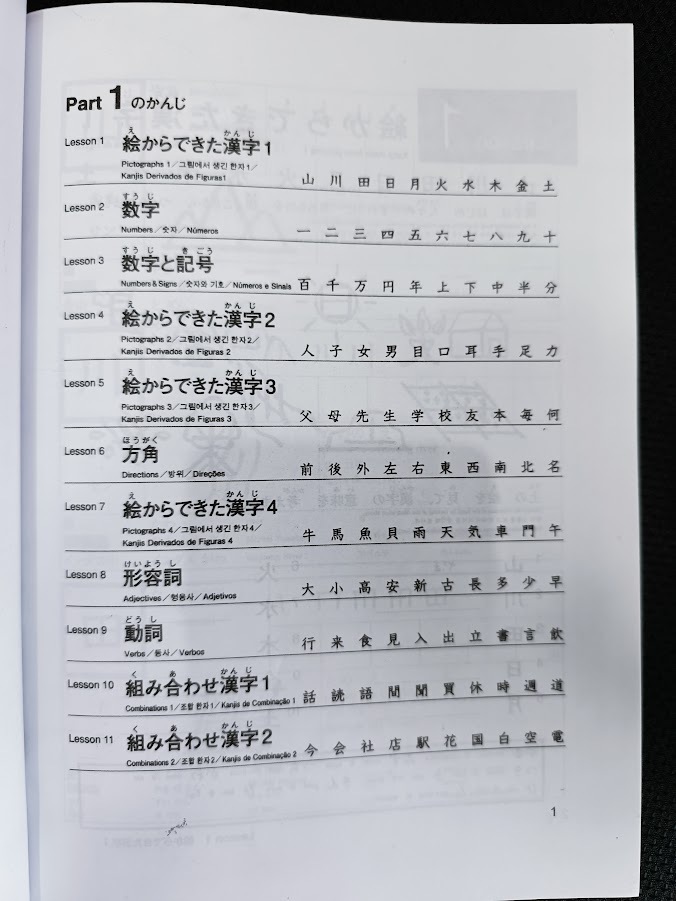 Part 1 のかんじ
Lesson 1 絵からできた漢字1
え かんじ
Pictographs 1／그림에서 생긴 한자1／
Kanjis Derivados de Figuras1
山 川 田 日 月 火 水 木 金 土
Lesson 2 数字
すうじ
Numbers／숫자／Números
一 二 三 四 五 六 七 八 九 十
Lesson 3 数字と記号
すうじ きごう
Numbers & Signs／숫자와 기호／Números e Sinais
百 千 万 円 年 上 下 中 半 分
Lesson 4 絵からできた漢字2
え かんじ
Pictographs 2／그림에서 생긴 한자2／
Kanjis Derivados de Figuras 2
人 子 女 男 目 口 耳 手 足 力
Lesson 5 絵からできた漢字3
え かんじ
Pictographs 3／그림에서 생긴 한자3／
Kanjis Derivados de Figuras 3
父 母 先 生 学 校 友 本 毎 何
Lesson 6 方角
ほうがく
Directions／방위／Direções
前 後 外 左 右 東 西 南 北 名
Lesson 7 絵からできた漢字4
え かんじ
Pictographs 4／그림에서 생긴 한자4／
Kanjis Derivados de Figuras 4
牛 馬 魚 貝 雨 天 気 車 門 午
Lesson 8 形容詞
けいようし
Adjectives／형용사／Adjetivos
大 小 高 安 新 古 長 多 少 早
Lesson 9 動詞
どうし
Verbs／동사／Verbos
行 来 食 見 入 出 立 書 言 飲
Lesson 10 組み合わせ漢字1
く あ かんじ
Combinations 1／조합 한자1／Kanjis de Combinação 1
話 読 語 間 聞 買 休 時 週 道
Lesson 11 組み合わせ漢字2
く あ かんじ
Combinations 2／조합 한자2／Kanjis de Combinação 2
今 会 社 店 駅 花 国 白 空 電
1